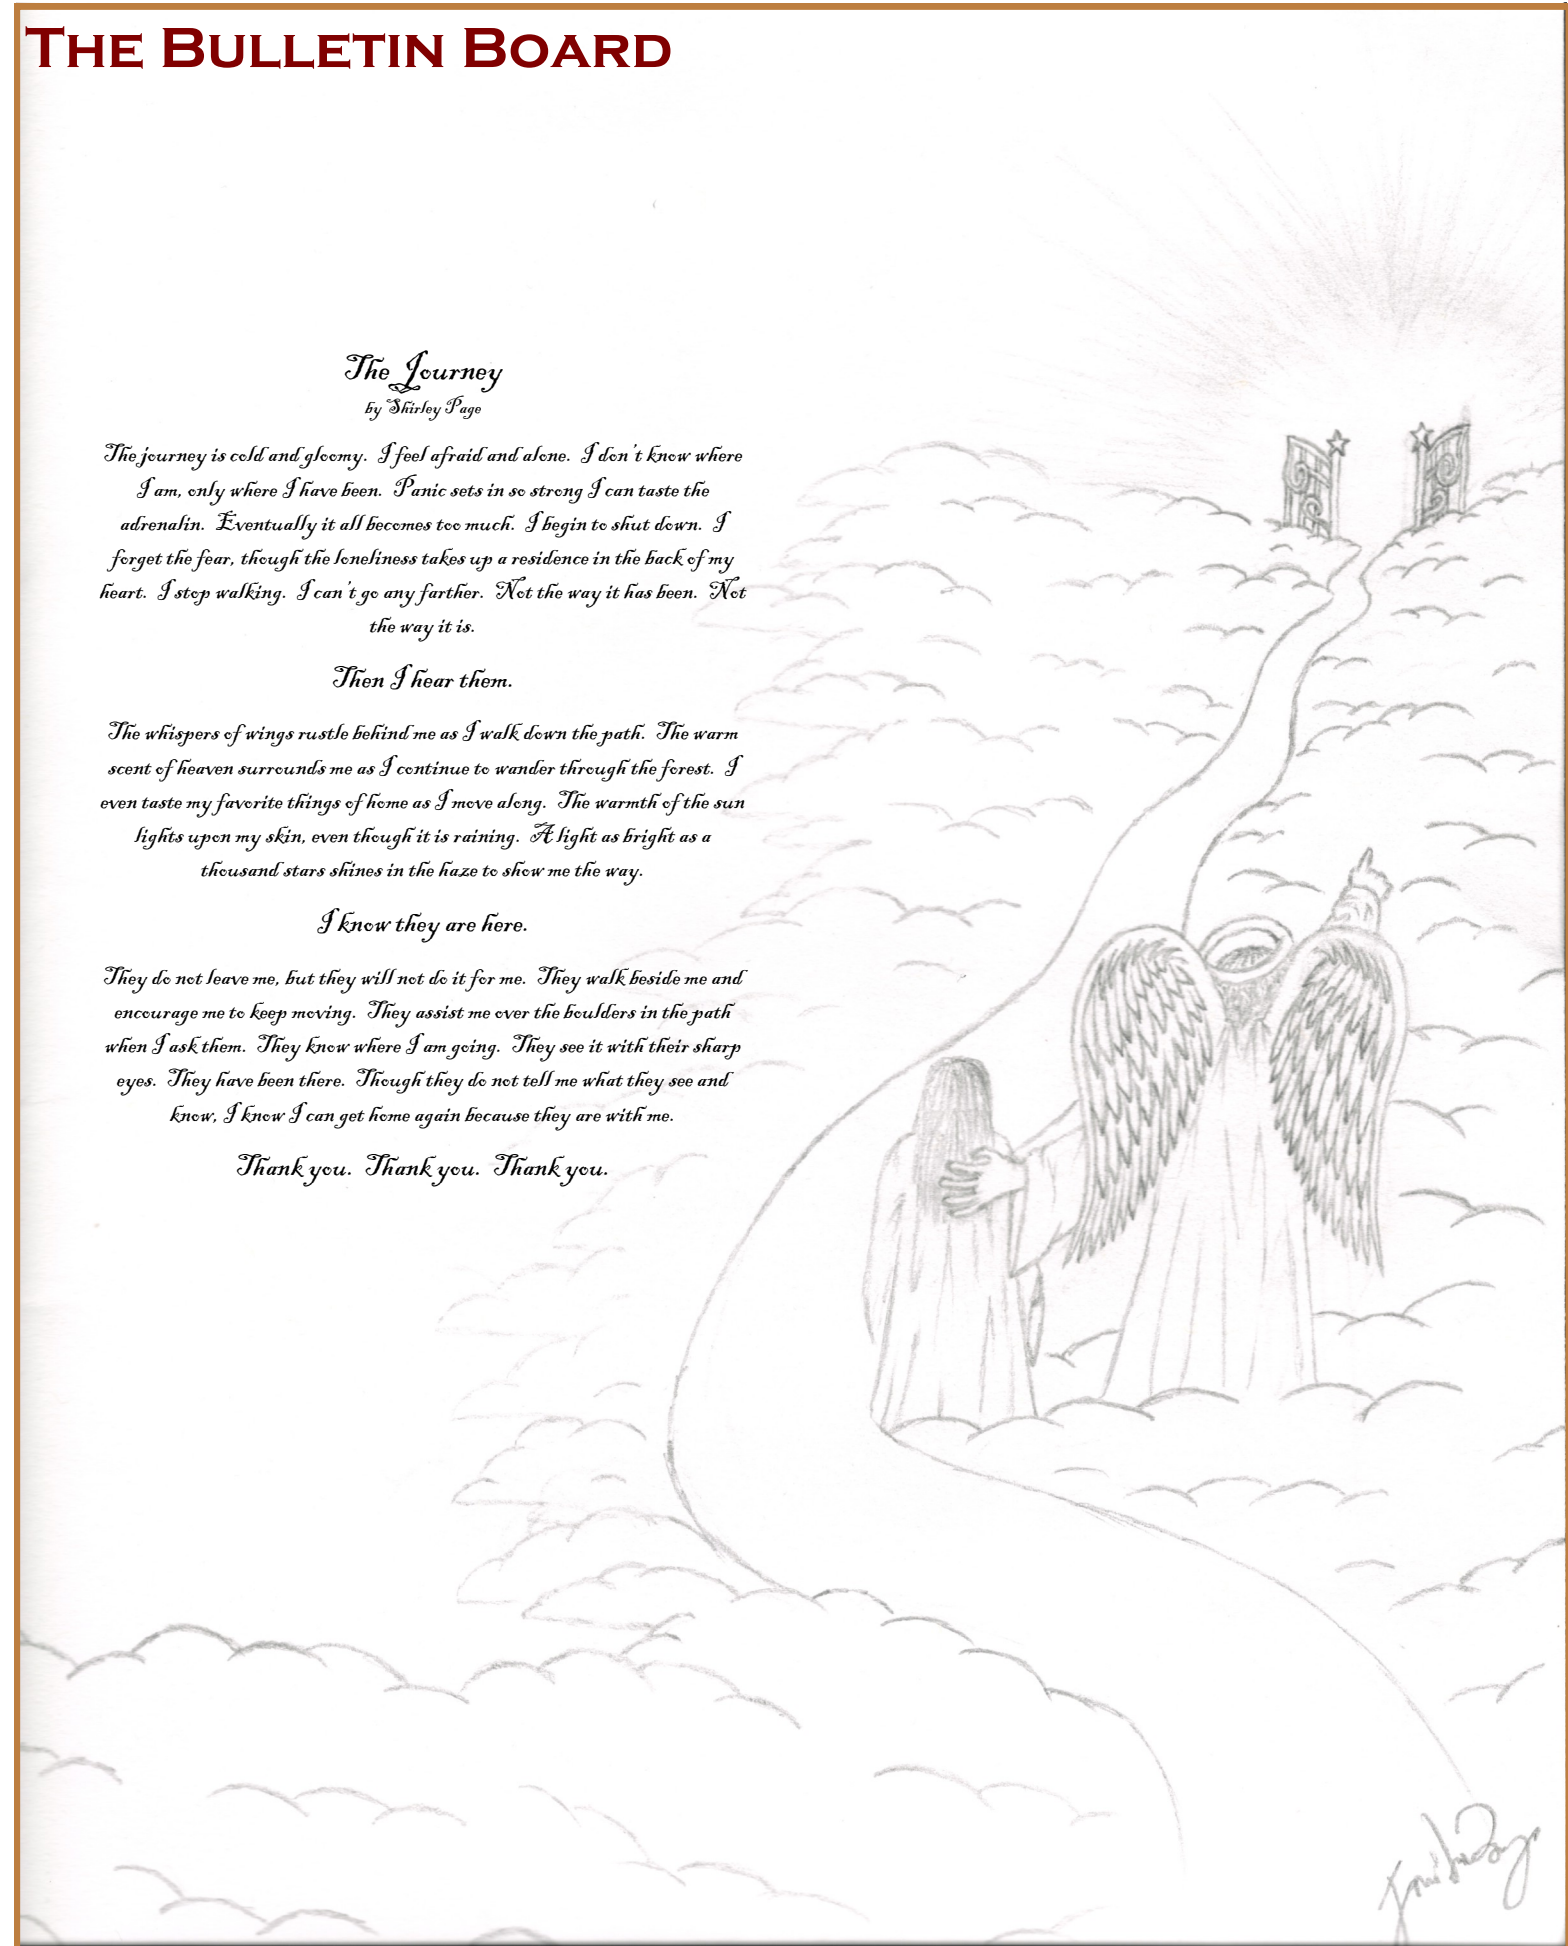 The Bulletin Board
The Journey
by Shirley Page
The journey is cold and gloomy.  I feel afraid and alone.  I don't know where
I am, only where I have been.  Panic sets in so strong I can taste the
adrenalin.  Eventually it all becomes too much.  I begin to shut down.  I
forget the fear, though the loneliness takes up a residence in the back of my
heart.  I stop walking.  I can't go any farther.  Not the way it has been.  Not
the way it is.
Then I hear them.
The whispers of wings rustle behind me as I walk down the path.  The warm
scent of heaven surrounds me as I continue to wander through the forest.  I
even taste my favorite things of home as I move along.  The warmth of the sun
lights upon my skin, even though it is raining.  A light as bright as a
thousand stars shines in the haze to show me the way.
I know they are here.
They do not leave me, but they will not do it for me.  They walk beside me and
encourage me to keep moving.  They assist me over the boulders in the path
when I ask them.  They know where I am going.  They see it with their sharp
eyes.  They have been there.  Though they do not tell me what they see and
know, I know I can get home again because they are with me.
Thank you.  Thank you.  Thank you.